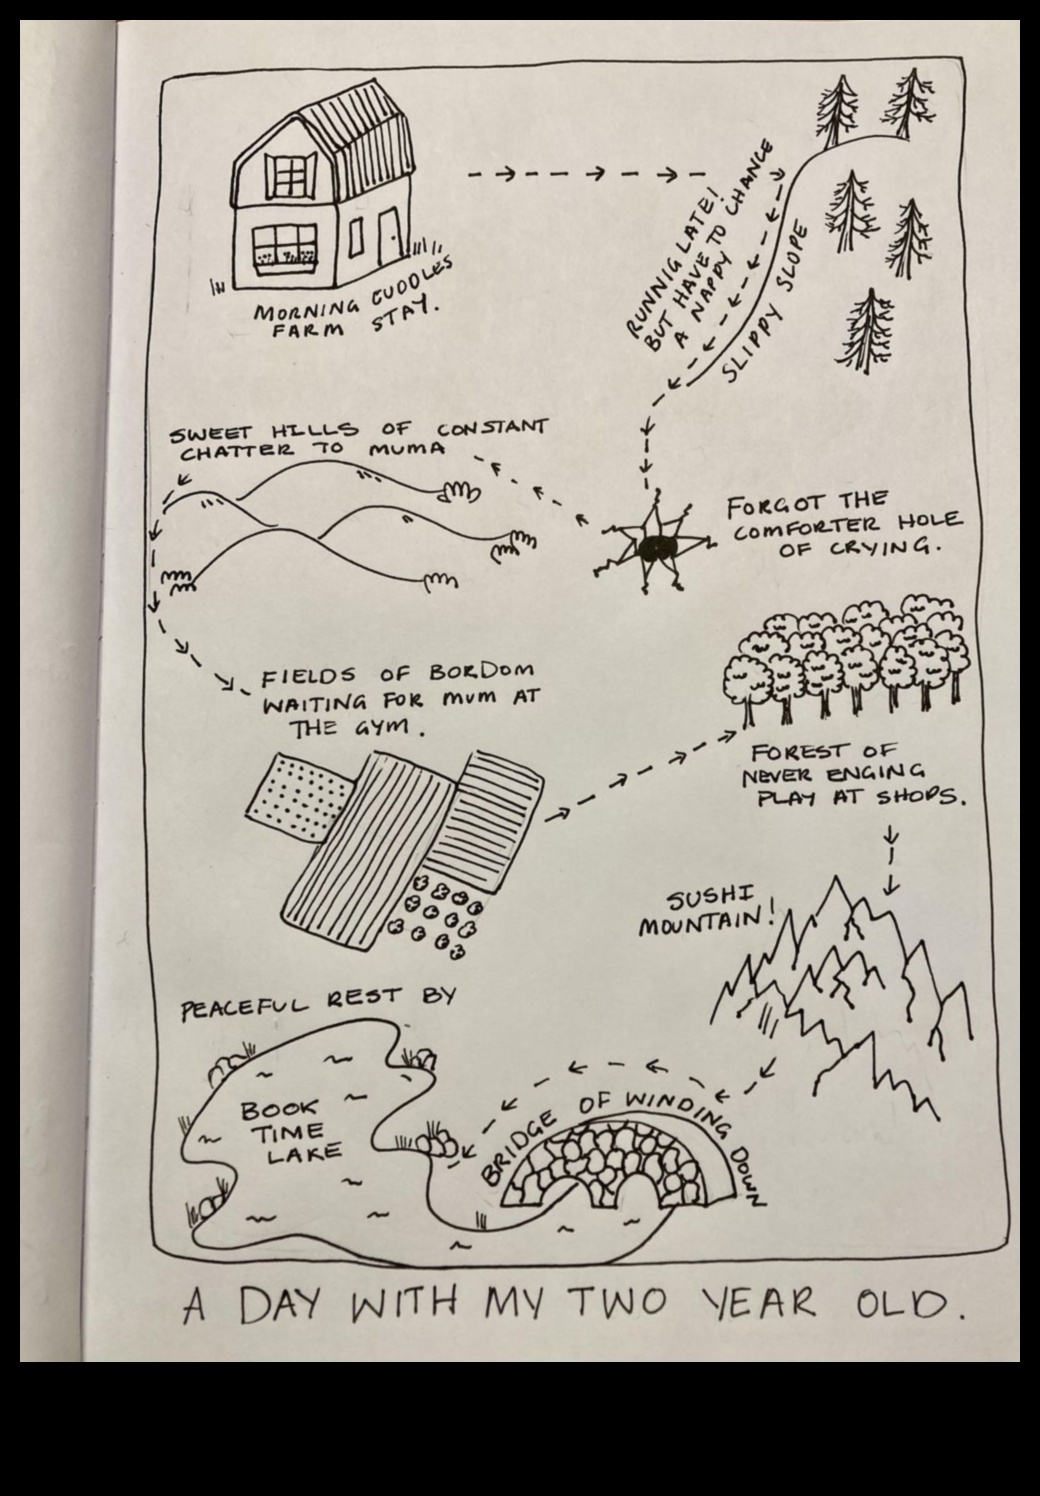 MORNING CUDDLES
FARM STAY.
RUNNIG LATE!
BUT HAVE TO CHANGE
A NAPPY
SLIPPY SLOPE
SWEET HILLS OF CONSTANT
CHATTER TO MUMA
FORGOT THE
COMFORTER HOLE
OF CRYING.
FIELDS OF BORDOM
WAITING FOR MUM AT
THE GYM.
FOREST OF
NEVER ENGING
PLAY AT SHOPS.
SUSHI
MOUNTAIN!
PEACEFUL REST BY
BOOK
TIME
LAKE
BRIDGE OF WINDING DOWN
A DAY WITH MY TWO YEAR OLD.